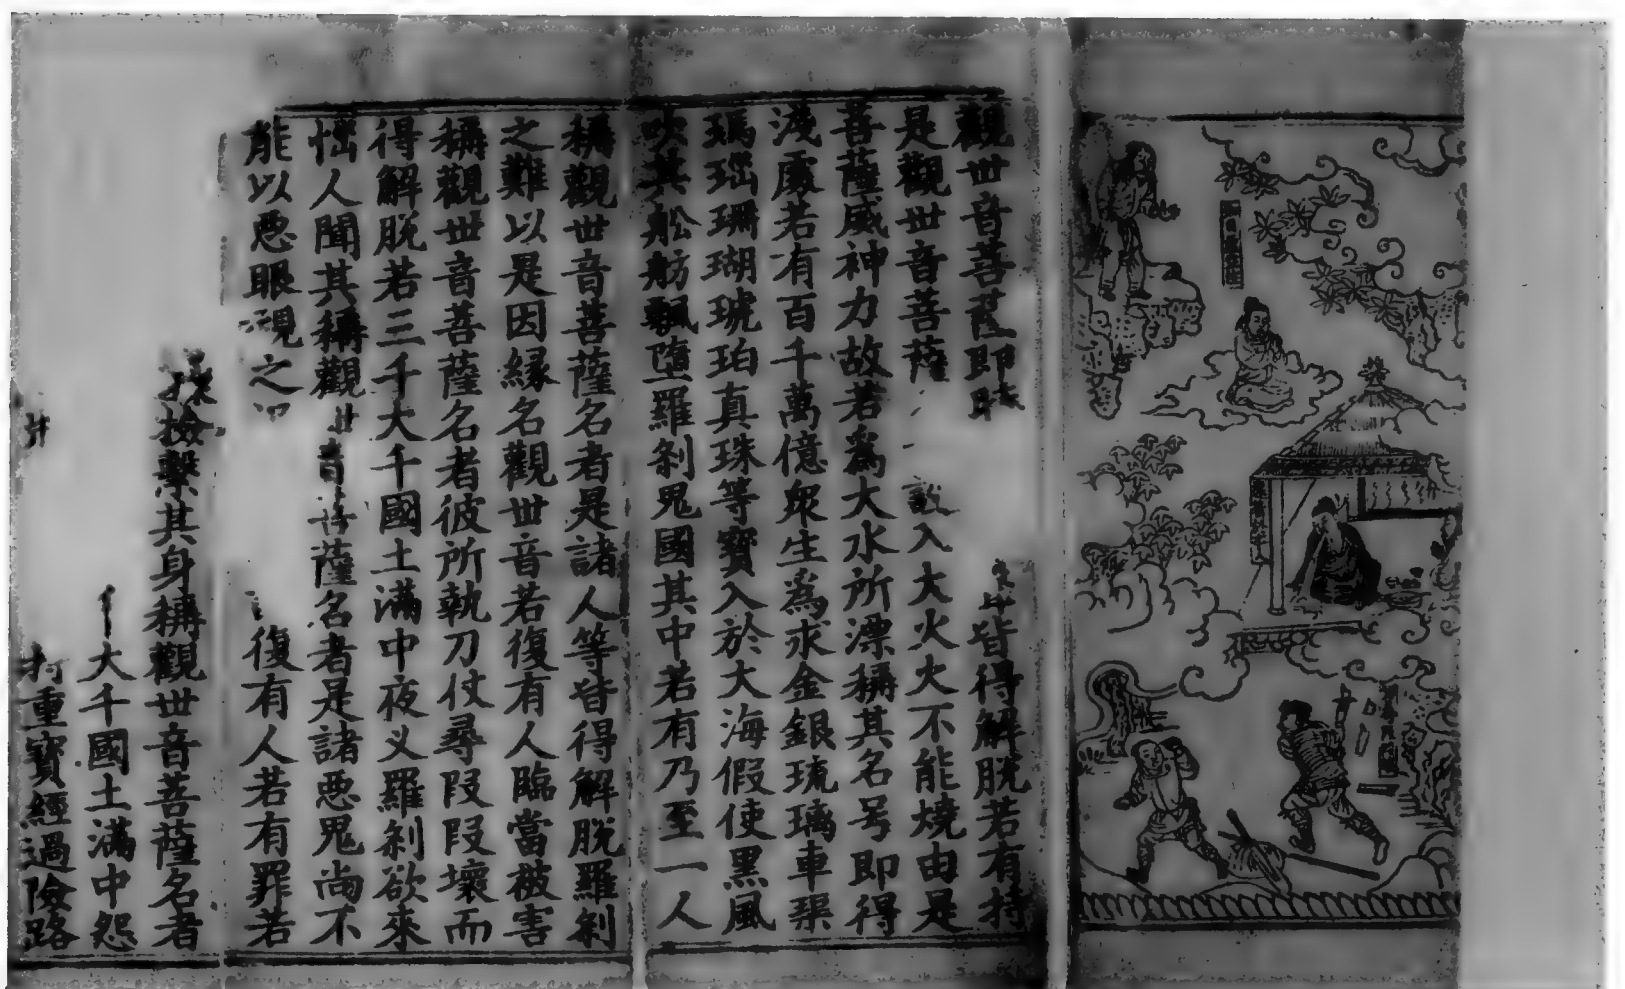 觀世音菩薩即時
皆得解脫若有持
是觀世音菩薩
設入大火火不能燒由是
菩薩威神力故若為大水所漂稱其名号即得
淺處若有百千萬億眾生為求金銀琉璃車𤦲
瑪瑙珊瑚琥珀真珠等寶入於大海假使黑風
吹其舩舫飄墮羅剎鬼國其中若有乃至一人
稱觀世音菩薩名者是諸人等皆得解脫羅剎
之難以是因緣名觀世音若復有人臨當被害
稱觀世音菩薩名者彼所執刀仗尋段段壞而
得解脫若三千大千國土滿中夜叉羅剎欲來
惱人聞其稱觀世音菩薩名者是諸惡鬼尚不
能以惡眼視之
復有人若有罪若
檢繫其身稱觀世音菩薩名者
大千國土滿中怨
持重寶經過險路